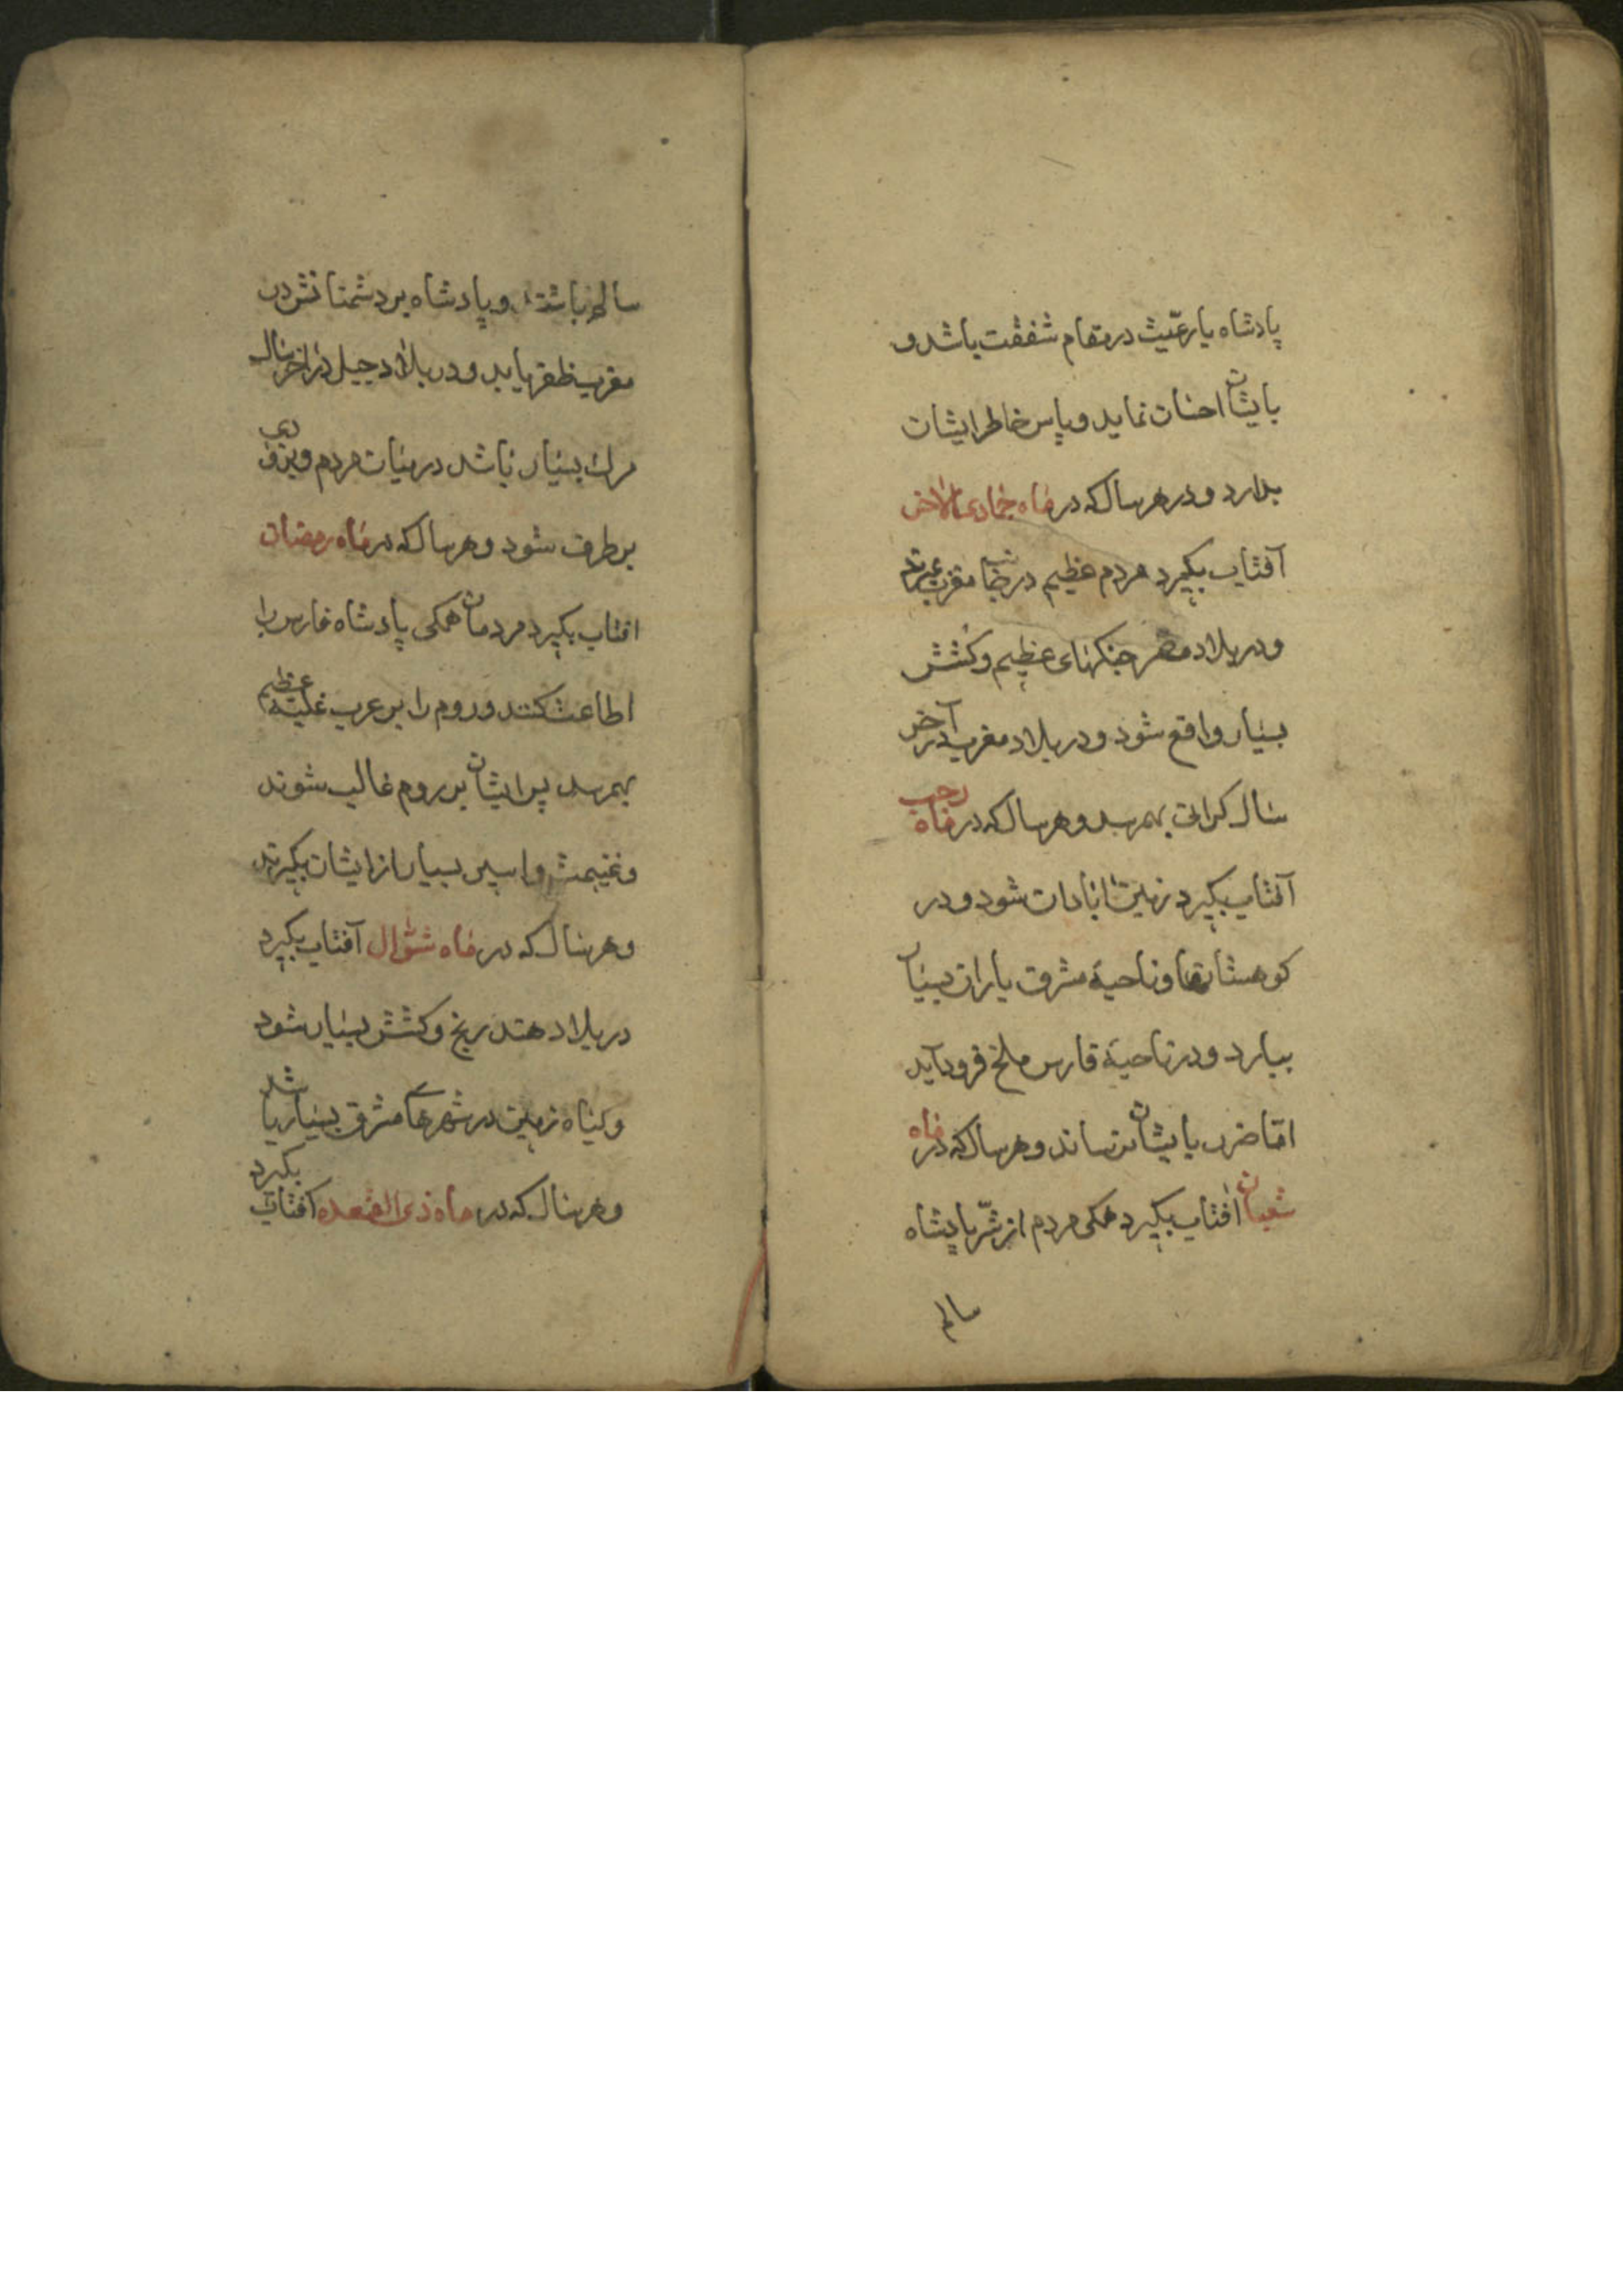 پادشاه با رعیّت در مقام شفقت باشد و
بایشان احسان نماید و پاس خاطر ایشان
بدارد و در هر سال که در ماه جمادی الاخر
آفتاب بگیرد مردم عظیم در مغرب
و در بلاد مصر جنگهای عظیم و کشش
بسیار واقع شود و در بلاد مغرب در آخر
سال گرانی بهم رسد و هر سال که در ماه رجب
آفتاب بگیرد زمین آبادان شود و در
کوهستانها و ناحیهٔ مشرق باران بسیار
ببارد و در ناحیهٔ فارس ملخ فرود آید
امّا ضرر بایشان نرساند و هر سال که در ماه
شعبان آفتاب بگیرد همگی مردم از شرّ پادشاه
سالم
سالم باشند و پادشاه بر دشمنانش در
مغرب ظفر یابد و در بلاد جبل در آخر سال
مرگ بسیار باشد در میان مردم و بزودی
بر طرف شود و هر سال که در ماه رمضان
افتاب بگیرد مردمان همگی پادشاه فارس را
اطاعت کنند و روم را بر عرب غلبهٔ عظیم
بهم رسد پس ایشان بر روم غالب شوند
و غنیمت و اسیر بسیار از ایشان بگیرند
و هر سال که در ماه شوّال آفتاب بگیرد
در بلاد هند رنج و کشش بسیار شود
و گیاه زمین در شهرهای مشرق بسیار باشد
و هر سال که در ماه ذی القعده آفتاب بگیرد